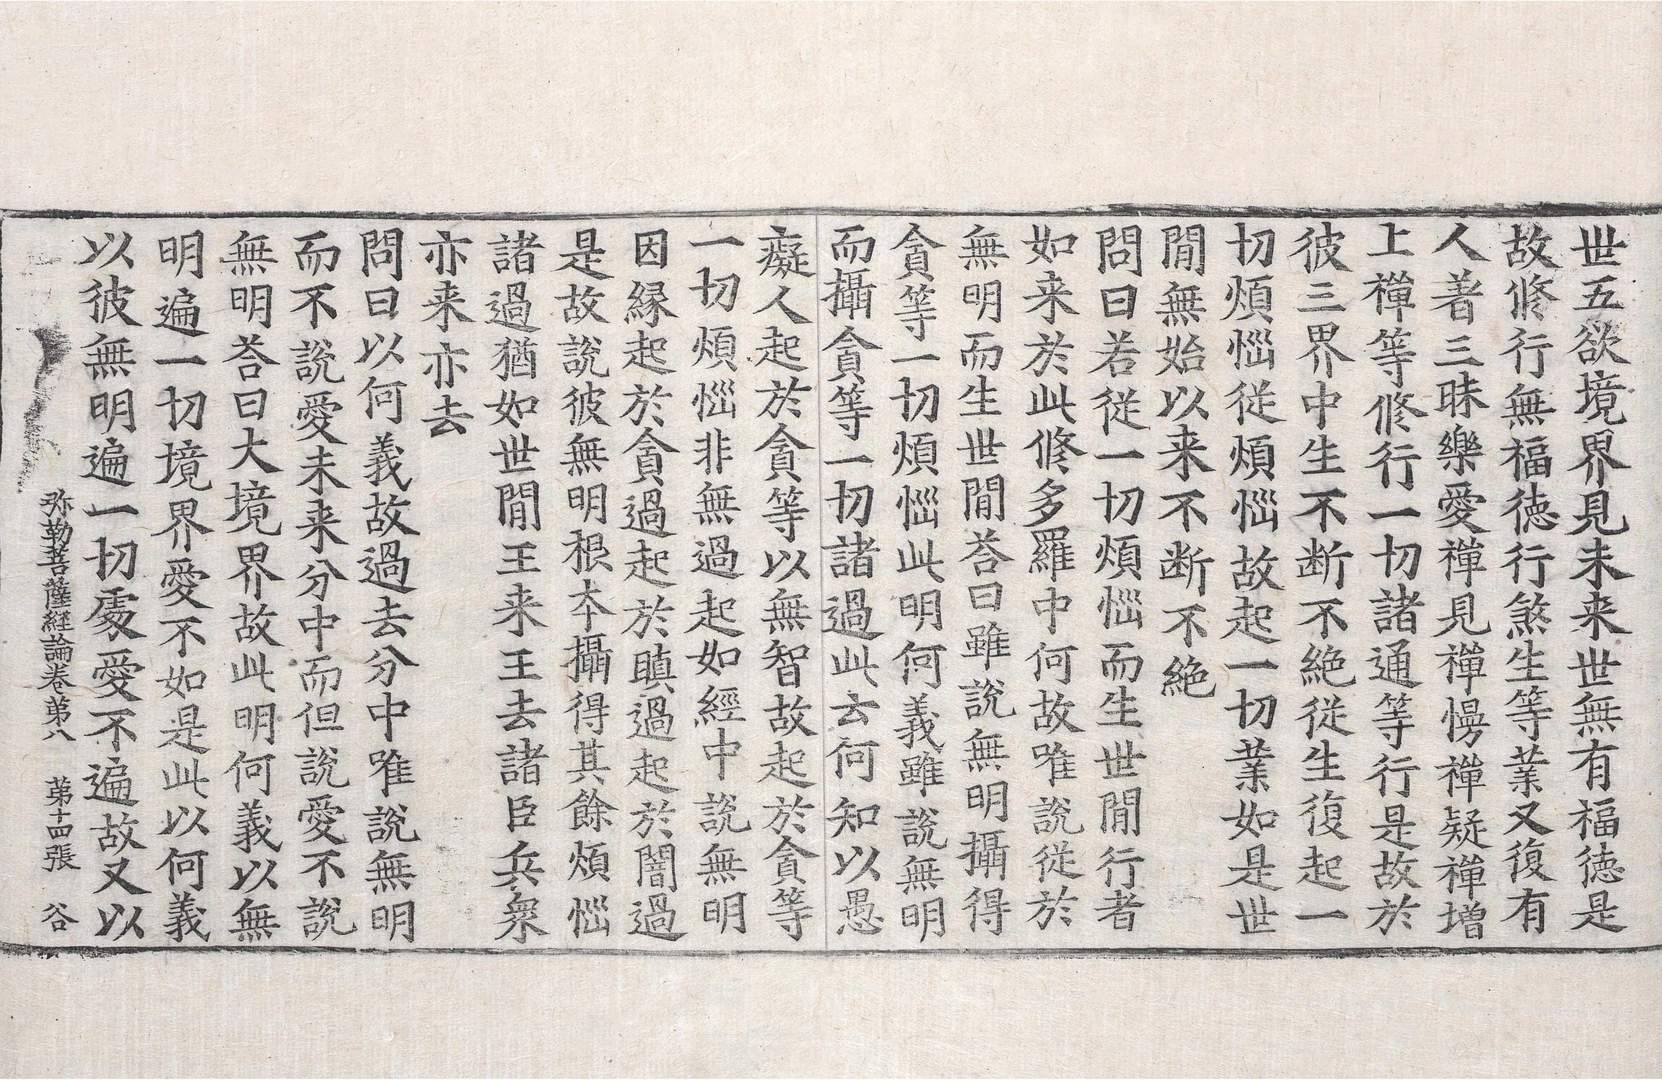 世五欲境界見未来世無有福德是
故修行無福德行煞生等業又復有
人著三昧樂愛禪見禪慢禪疑禪增
上禪等修行一切諸通等行是故於
彼三界中生不断不絶従生復起一
切煩惱従煩惱故起一切業如是世
間無始以来不断不絶
問曰若従一切煩惱而生世間行者
如来於此修多羅中何故唯說従於
無明而生世間荅曰雖說無明攝得
貪等一切煩惱此明何義雖說無明
而攝貪等一切諸過此云何知以愚
癡人起於貪等以無智故起於貪等
一切煩惱非無過起如經中說無明
因縁起於貪過起於瞋過起於闇過
是故說彼無明根夲攝得其餘煩惱
諸過猶如世間王来王去諸臣兵衆
亦来亦去
問曰以何義故過去分中唯說無明
而不說愛未来分中而但說愛不說
無明荅曰大境界故此明何義以無
明遍一切境界愛不如是此以何義
以彼無明遍一切處愛不遍故又以
弥勒菩薩経論卷第八　第十四張　谷